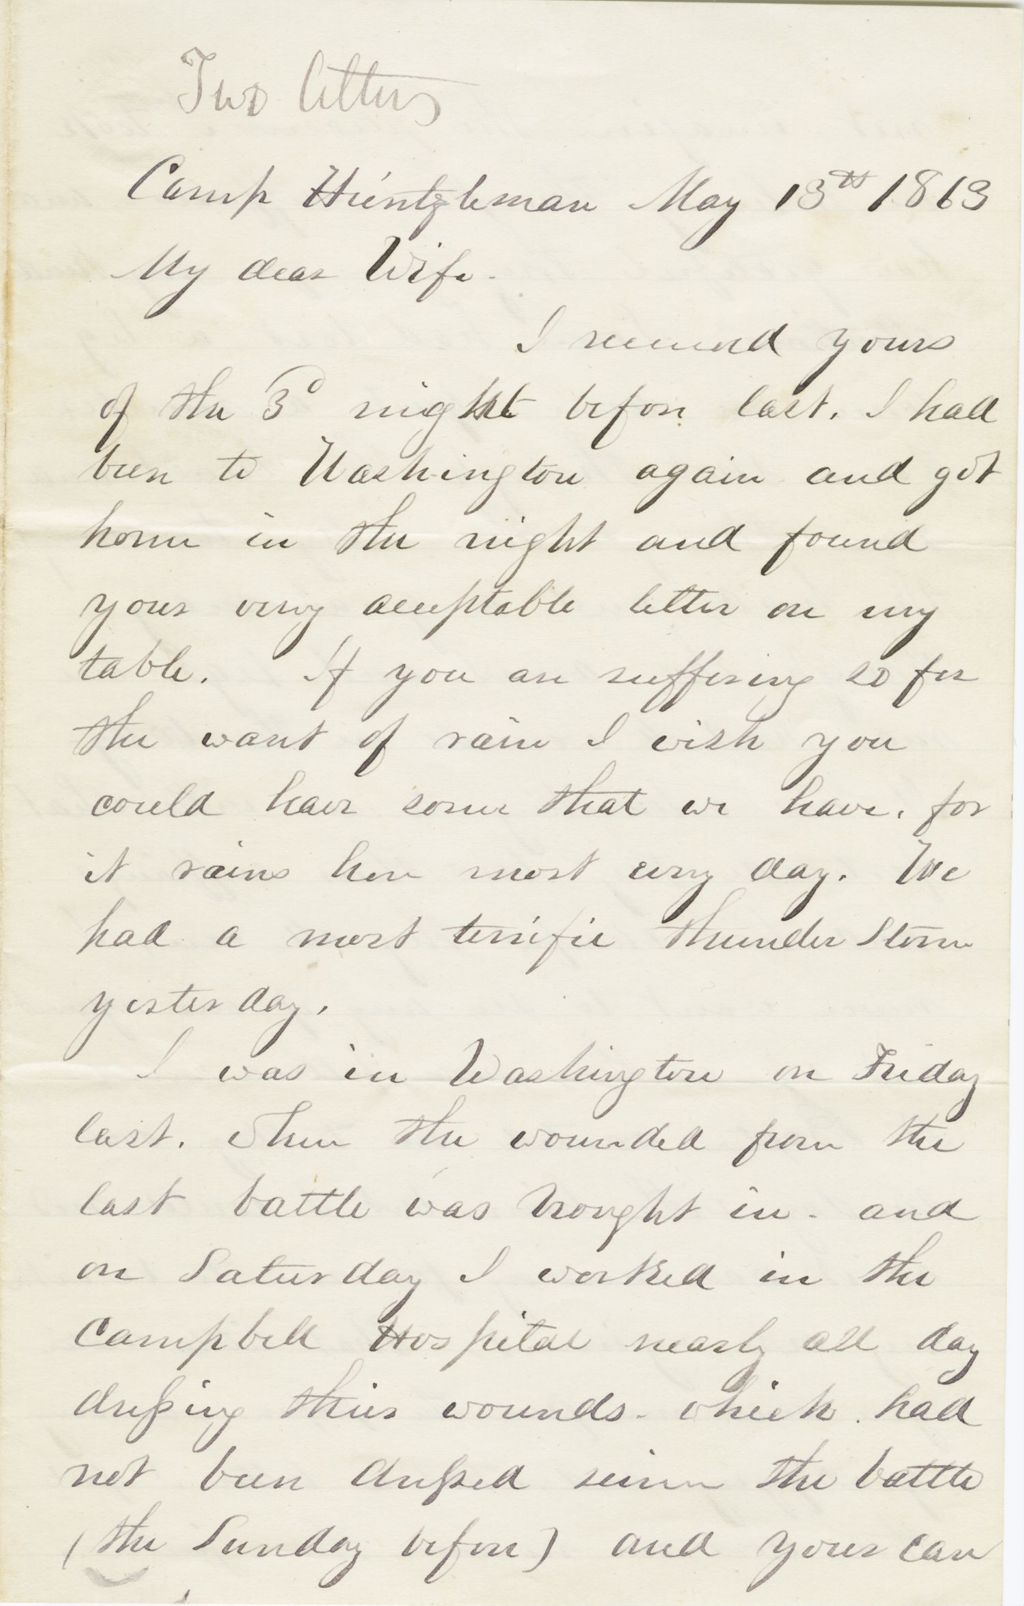 Two letters
Camp Hientzleman May 13th 1863
My dear Wife.
I received yours
of the 3d night before last. I had
been to Washington again and got
home in the night and found
your very acceptable letter on my
table. If you are suffering so for
the want of rain I wish you
could have some that we have. for
it rains here most every day. We
had a most terrific thunder Storm
yesterday.
I was in Washington on Friday
last. when the wounded from the
last battle was brought in - and
on Saturday I worked in the
Campbell Hospital nearly all day
dressing their wounds - which had
not been dressed since the battle
(the Sunday before) and your can